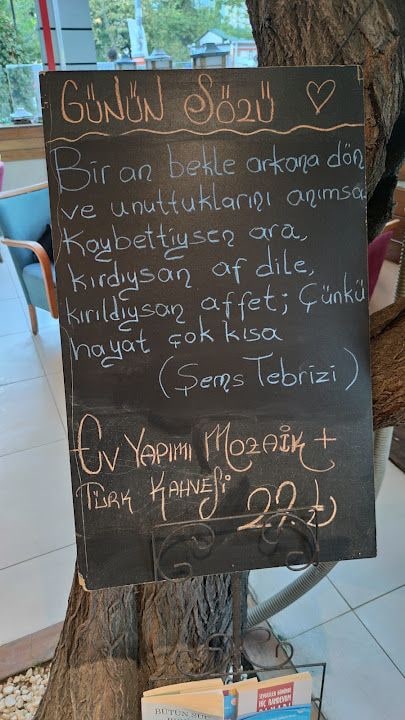 GÜNÜN SÖZÜ
Bir an bekle arkana dön
ve unuttuklarını anımsa
Kaybettiysen ara,
kırdıysan af dile,
kırıldıysan affet; Çünkü
hayat çok kısa
(Şems Tebrizi)
EV YAPIMI MOZAİK +
TÜRK KAHVESİ
22 ₺
BÜTÜN